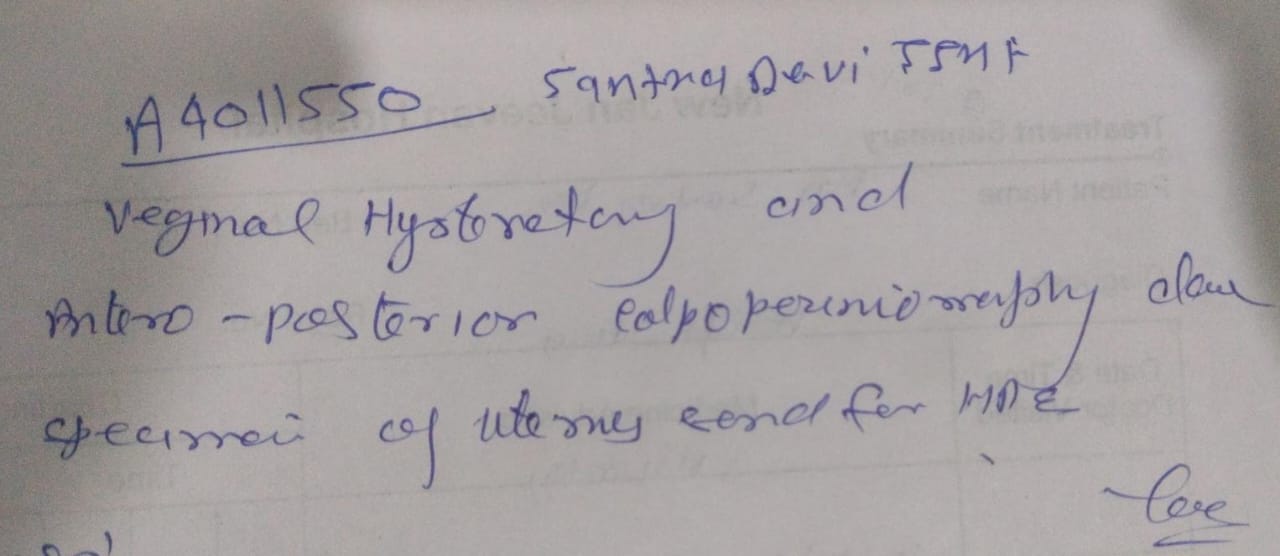 A4011550 Santra Devi 55Y1 F
Veginal Hysteretony and
Antero-posterior colpoperiniorraphy done
specimen of uterus send for HPE